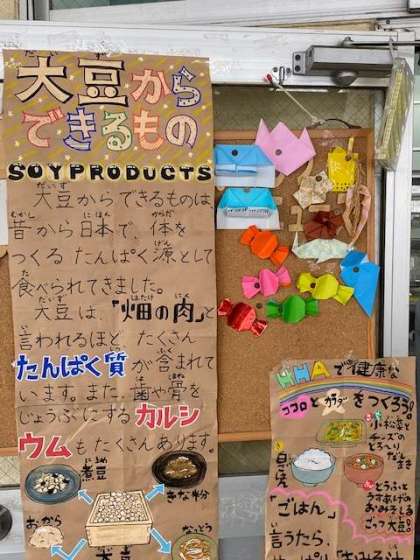 大豆から
できるもの
SOY PRODUCTS
大豆からできるものは、
昔から日本で、体を
つくるたんぱく源として
食べられてきました。
大豆は、「畑の肉」と
言われるほど、たくさん
たんぱく質が含まれて
います。また、歯や骨を
じょうぶにするカルシ
ウムもたくさんあります。
煮豆
きな粉
おから
なっとう
大豆
HHAで健康な
ココロとカラダをつくろう。
小松菜と
チーズの
「ごはん」
言うたら、